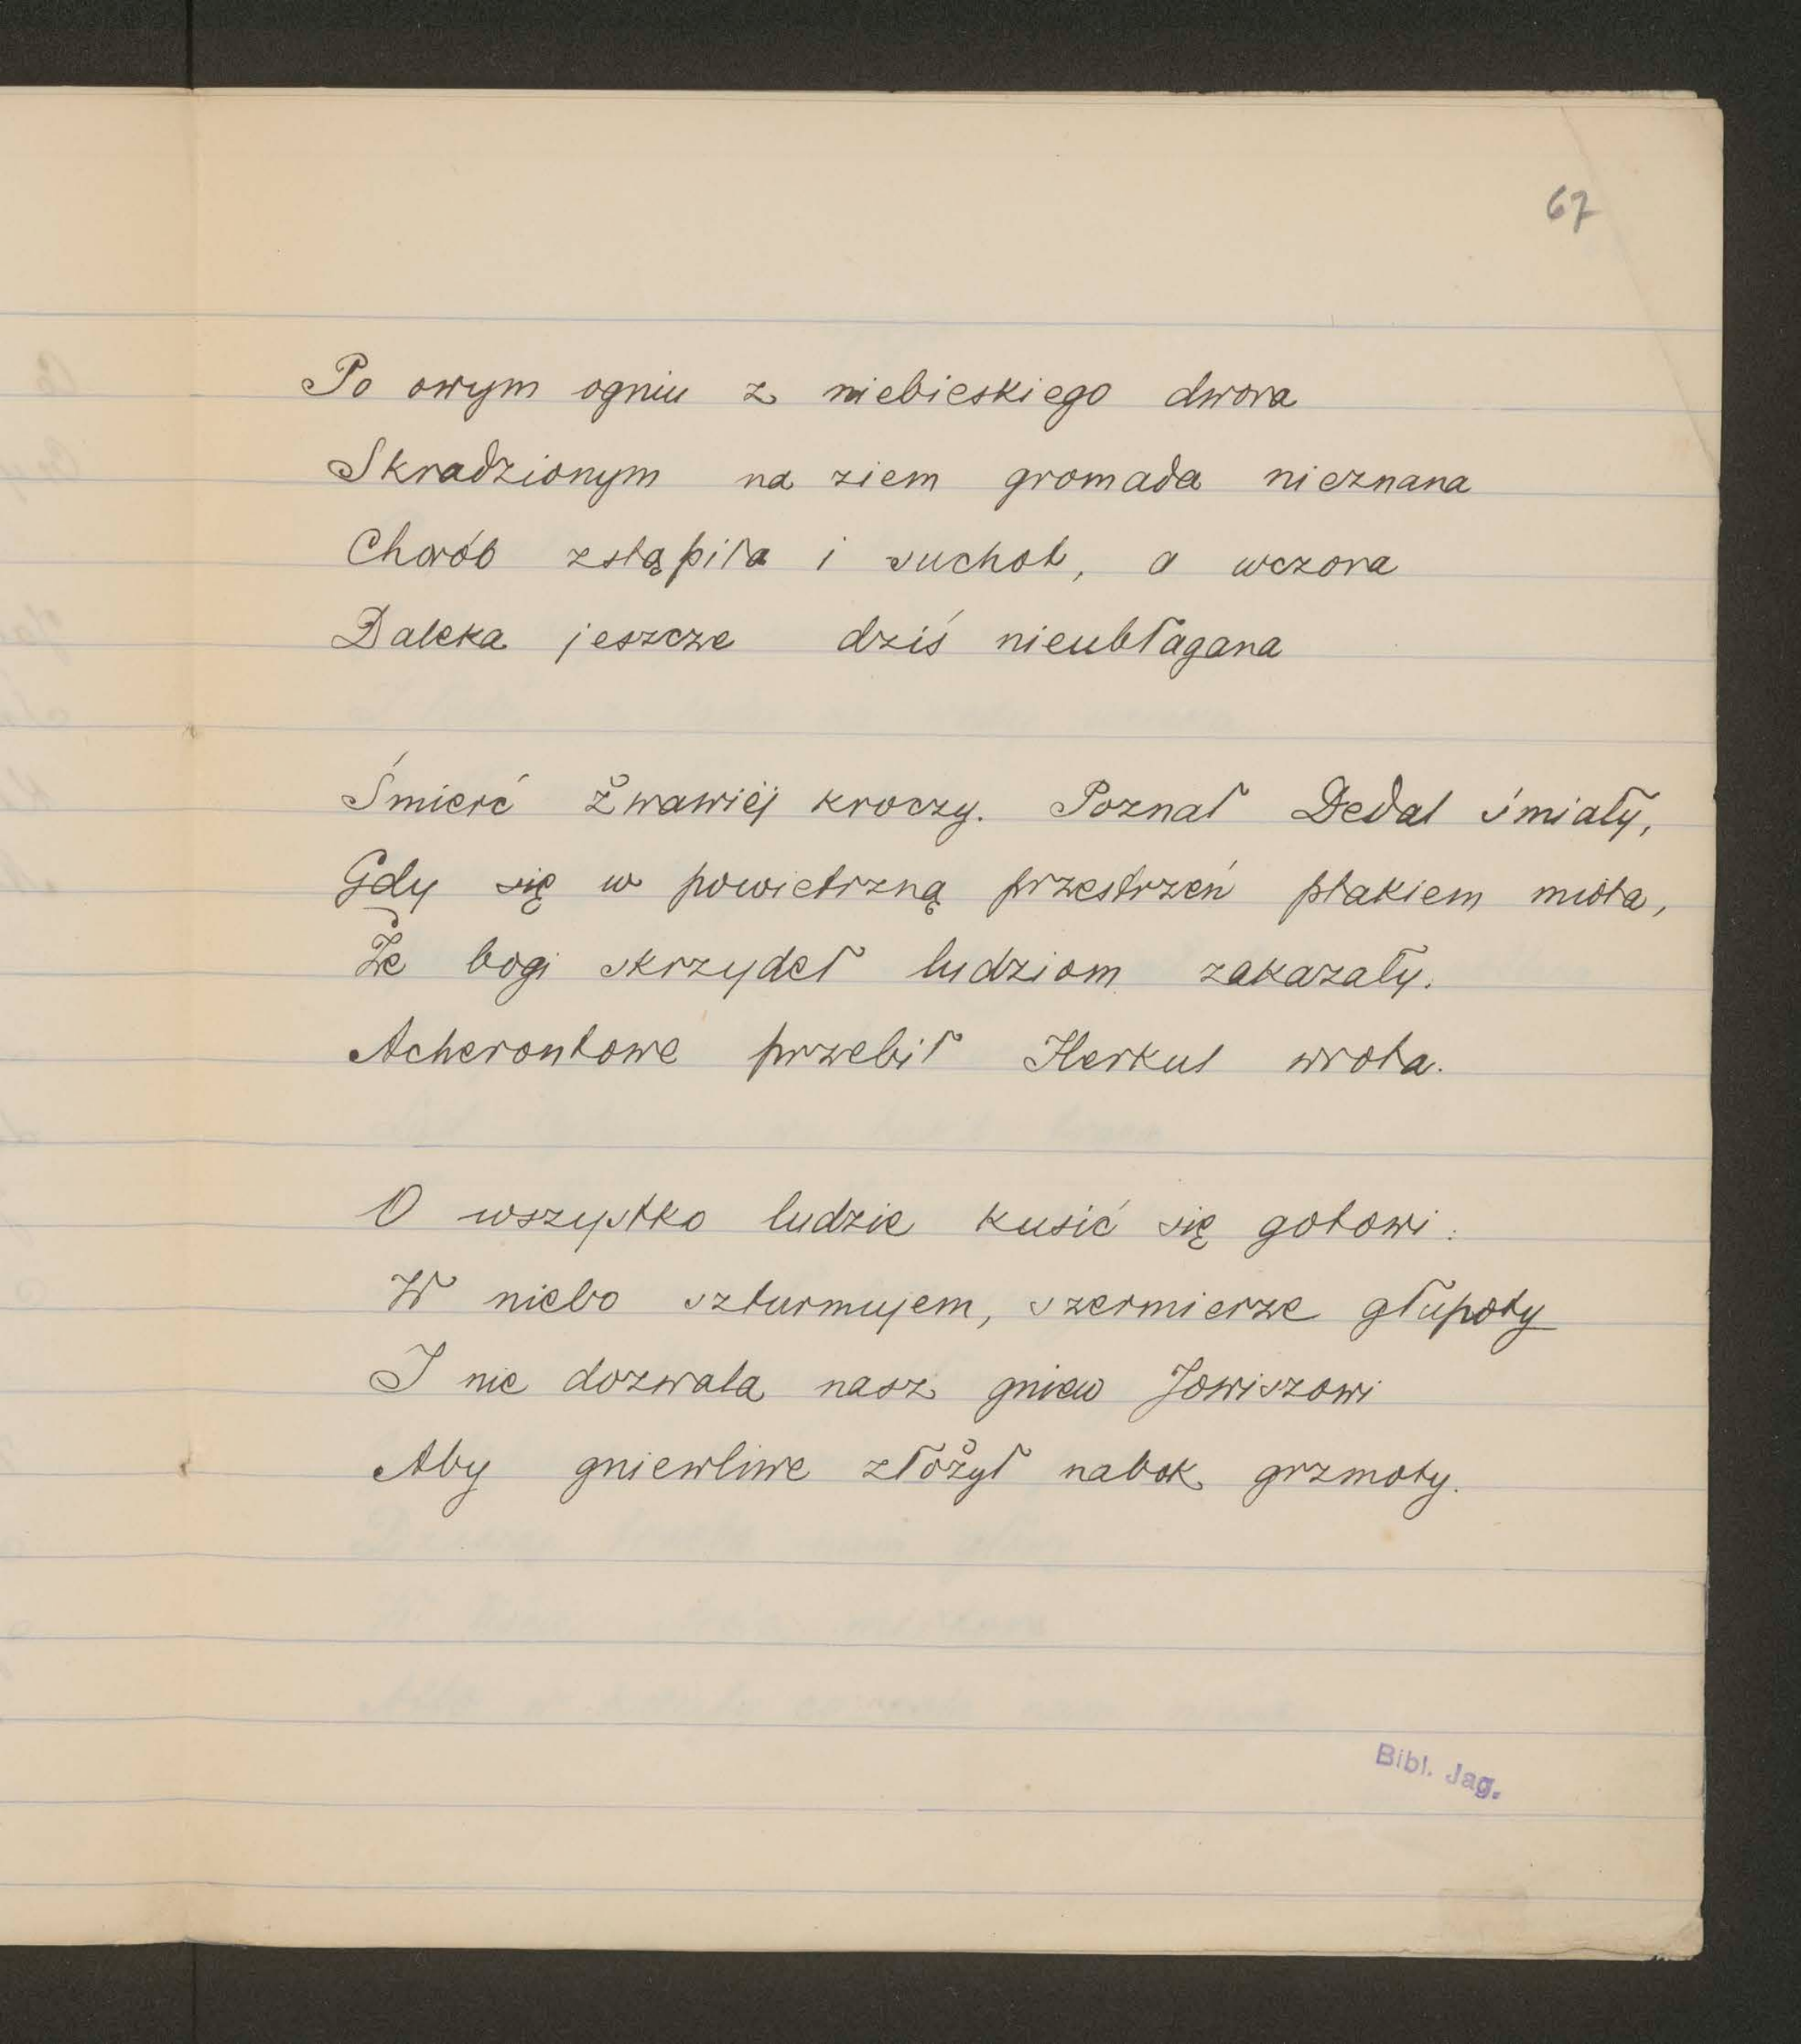 67
Po owym ogniu z niebieskiego dwora
Skradzionym na ziem gromada nieznana
Chorób zstąpiła i suchot, a wczora
Daleka jeszcze dziś nieubłagana
Śmierć żwawiéj kroczy. Poznał Dedal śmiały,
Gdy się w powietrzną przestrzeń ptakiem miota,
Że bogi skrzydeł ludziom zakazały.
Acherontowe przebił Herkul wrota.
O wszystko ludzie kusić się gotowi:
W niebo szturmujem, szermierze głupoty
I nie dozwala nasz gniew Jowiszowi
Aby gniewliwe złożył nabok grzmoty.
Bibl. Jag.